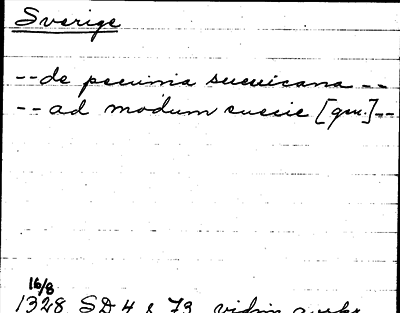 Sverige
-- de pecunia suecicana --
-- ad modum suecie [gen.] --
16/8
1328 SD 4 s 73 vidim